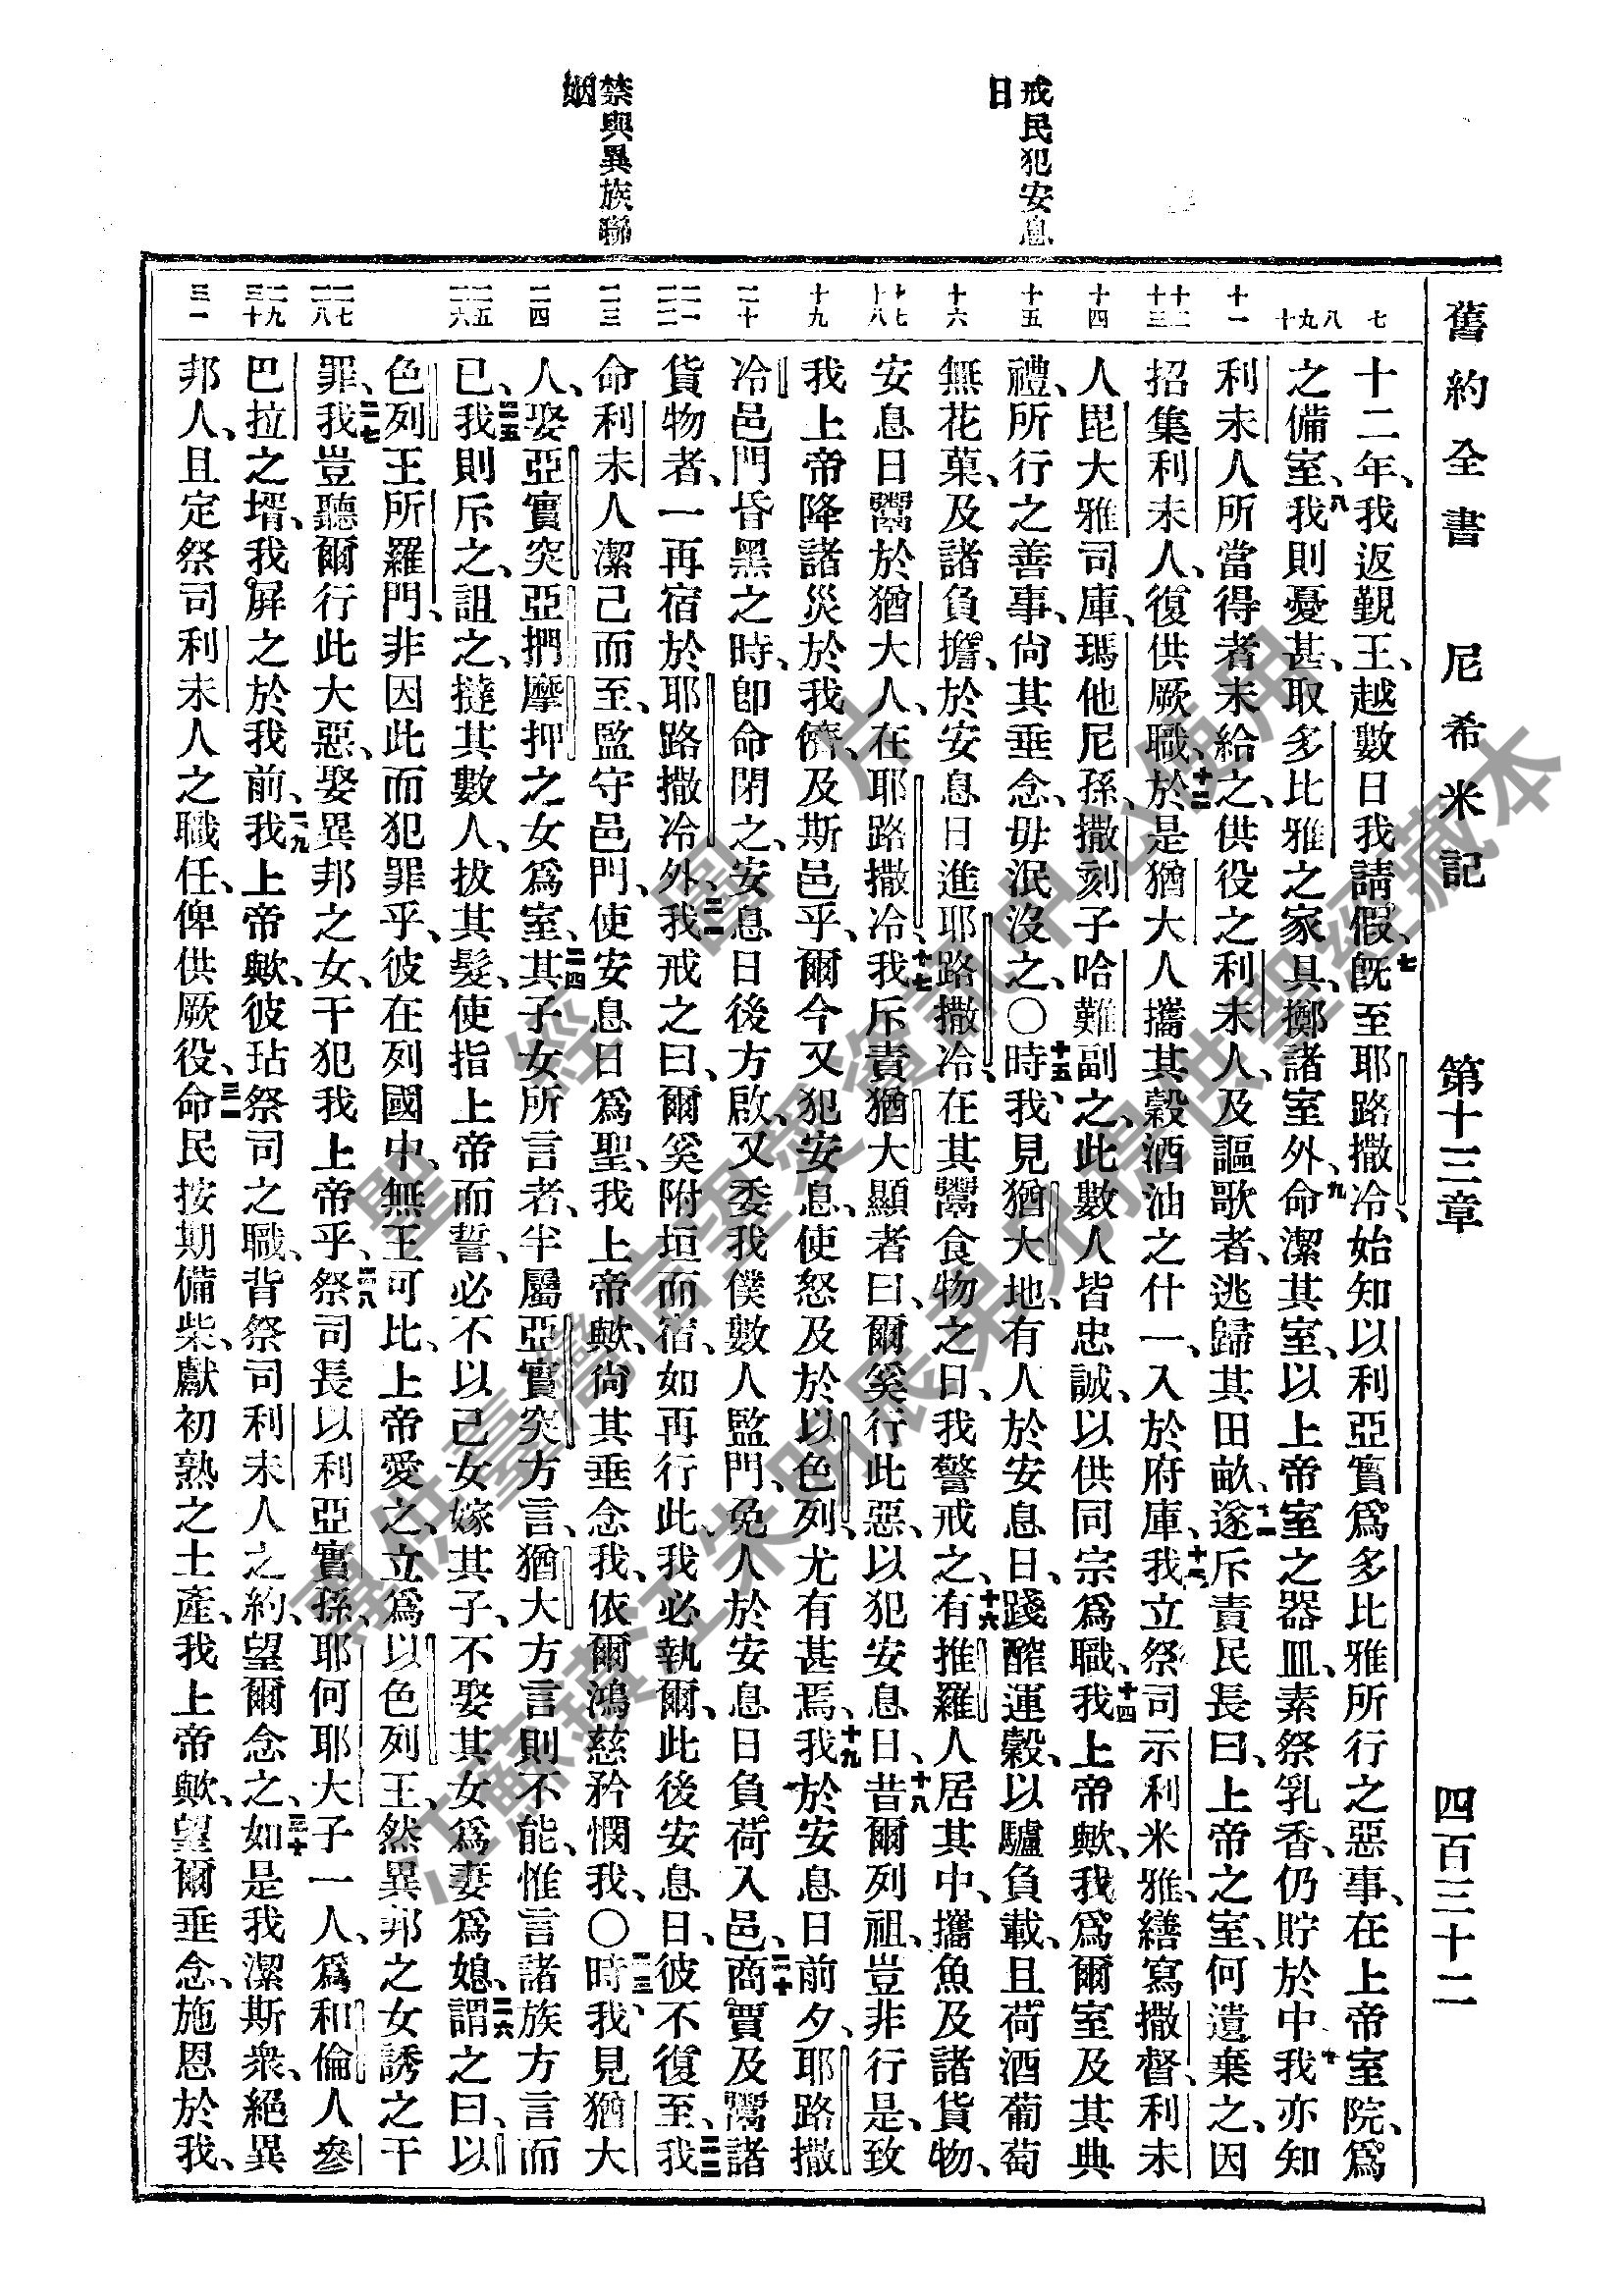 舊約全書　尼希米記　第十三章　四百三十二
戒民犯安息
日
禁與異族聯
姻
七
八
九
十
十一
十二
十三
十四
十五
十六
十七
十八
十九
二十
二一
二二
二三
二四
二五
二六
二七
二八
二九
三十
三一
十二年、我返覲王、越數日我請假、七既至耶路撒冷、始知以利亞實爲多比雅所行之惡事、在上帝室院、爲
之備室、八我則憂甚、取多比雅之家具、擲諸室外、九命潔其室、以上帝室之器皿、素祭乳香、仍貯於中、十我亦知
利未人所當得者未給之、供役之利未人、及謳歌者、逃歸其田畝、十一遂斥責民長曰、上帝之室、何遺棄之、因
招集利未人、復供厥職、十二於是猶大人攜其穀酒油之什一、入於府庫、十三我立祭司示利米雅、繕寫撒督、利未
人毘大雅司庫、瑪他尼孫、撒刻子哈難副之、此數人皆忠誠、以供同宗爲職、十四我上帝歟、我爲爾室及其典
禮、所行之善事、尙其垂念、毋泯沒之、○十五時、我見猶大地、有人於安息日、踐醡運穀、以驢負載、且荷酒葡萄
無花菓、及諸負擔、於安息日進耶路撒冷、在其鬻食物之日、我警戒之、十六有推羅人居其中、攜魚及諸貨物、
安息日鬻於猶大人、在耶路撒冷、十七我斥責猶大顯者曰、爾奚行此惡、以犯安息日、十八昔爾列祖、豈非行是、致
我上帝降諸災於我儕、及斯邑乎、爾今又犯安息、使怒及於以色列、尤有甚焉、十九我於安息日前夕、耶路撒
冷邑門昏黑之時、卽命閉之、安息日後方啟、又委我僕數人監門、免人於安息日負荷入邑、二十商賈及鬻諸
貨物者、一再宿於耶路撒冷外、二一我戒之曰、爾奚附垣而宿、如再行此、我必執爾、此後安息日、彼不復至、二二我
命利未人潔己而至、監守邑門、使安息日爲聖、我上帝歟、尙其垂念我、依爾鴻慈矜憫我、○二三時、我見猶大
人、娶亞實突亞捫摩押之女爲室、二四其子女所言者、半屬亞實突方言、猶大方言則不能、惟言諸族方言而
已、二五我則斥之、詛之、撻其數人、拔其髮、使指上帝而誓、必不以己女嫁其子、不娶其女爲妻爲媳、二六謂之曰、以
色列王所羅門、非因此而犯罪乎、彼在列國中、無王可比、上帝愛之、立爲以色列王、然異邦之女誘之干
罪、二七我豈聽爾行此大惡、娶異邦之女、干犯我上帝乎、二八祭司長以利亞實孫、耶何耶大子一人、爲和倫人參
巴拉之壻、我屏之於我前、二九我上帝歟、彼玷祭司之職、背祭司利未人之約、望爾念之、三十如是我潔斯衆、絕異
邦人、且定祭司利未人之職任、俾供厥役、三一命民按期備柴、獻初熟之土產、我上帝歟、望爾垂念、施恩於我、